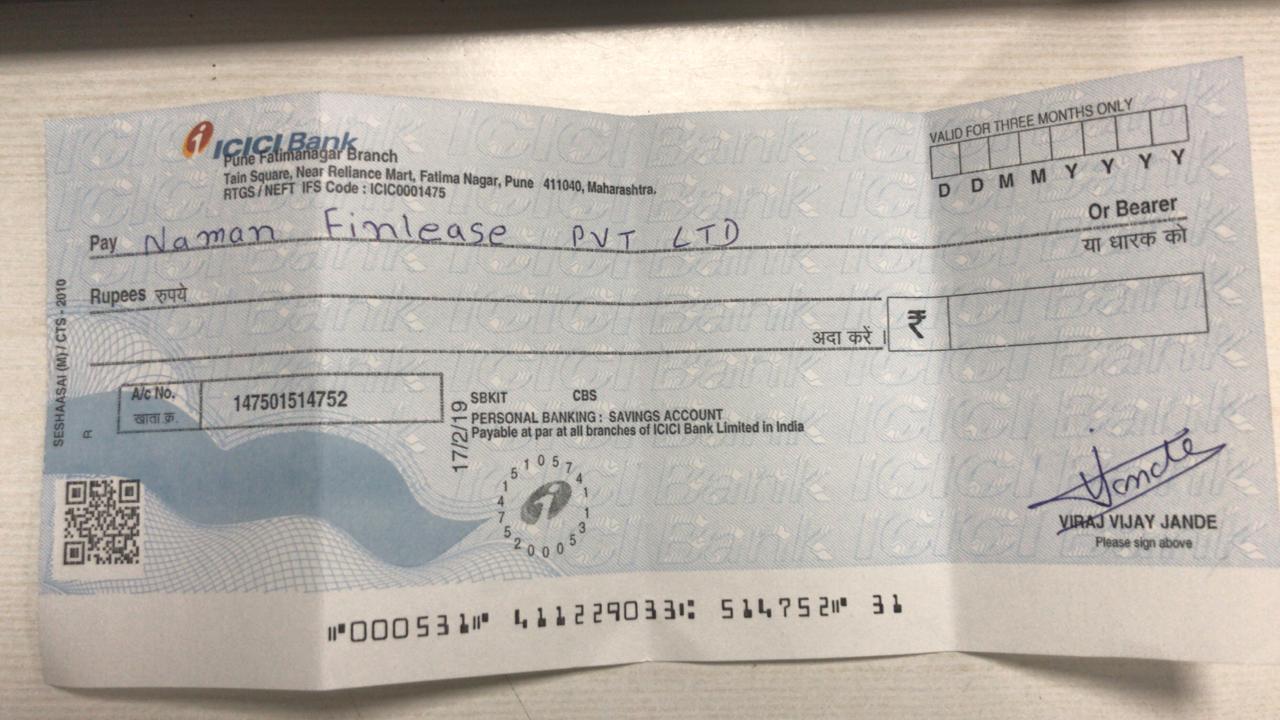 ICICI Bank
Pune Fatimanagar Branch
Tain Square, Near Reliance Mart, Fatima Nagar, Pune 411040, Maharashtra.
RTGS / NEFT IFS Code : ICIC0001475
VALID FOR THREE MONTHS ONLY
D D M M Y Y Y Y
Pay Naman Finlease PVT LTD
Or Bearer
या धारक को
Rupees रुपये
अदा करें ।
₹
A/c No.
खाता क्र.
147501514752
SBKIT CBS
PERSONAL BANKING : SAVINGS ACCOUNT
Payable at par at all branches of ICICI Bank Limited in India
17/2/19
SESHAASAI (M) / CTS - 2010
R
Jande
VIRAJ VIJAY JANDE
Please sign above
⑈000531⑈ 411229033⑆ 514752⑈ 31